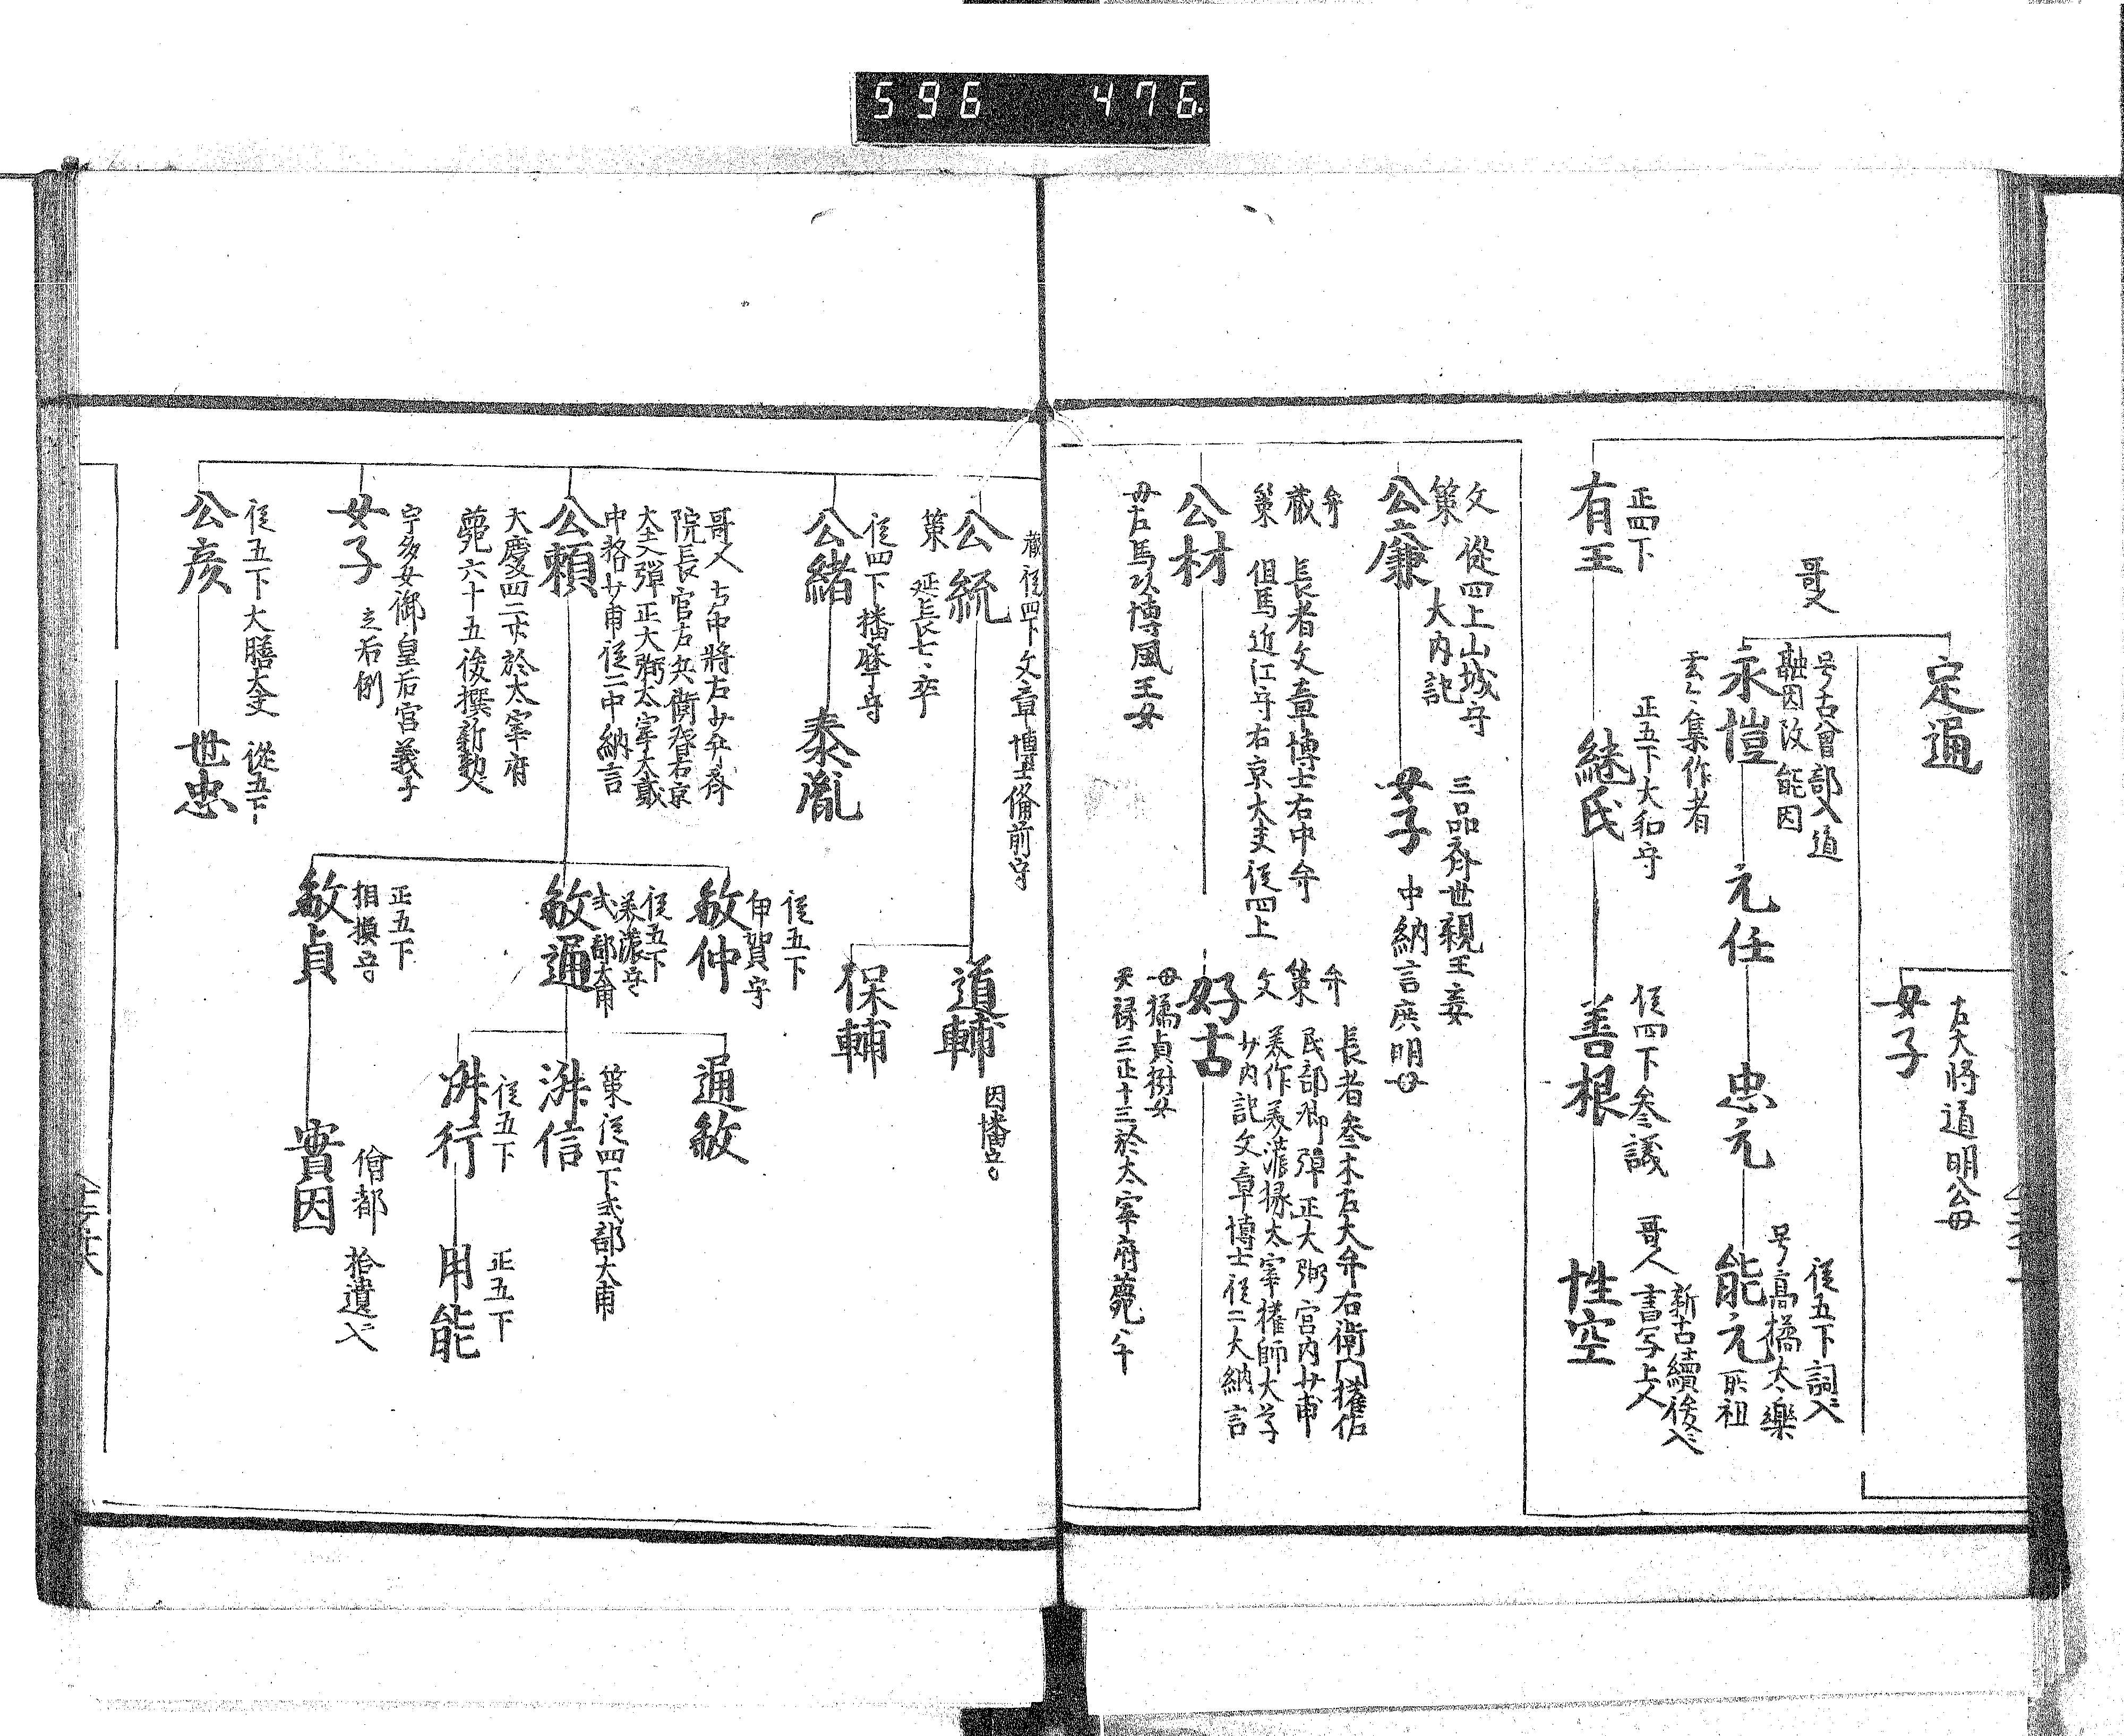 596 476
定遍
女子
右大将道明公母
哥人
永愷
号古曽部入道
融因改能因
玄々集作者
元任
忠元
能元
従五下詞入
号高橋太樂
祖
有王
正四下
継氏
正五下大和守
善根
従四下参議
性空
哥人
新古續後入
書写上人
公廉
文
策
従四上山城守
大内記
女子
三品斉世親王妾
中納言庶明母
公材
弁
蔵
策
長者文章博士右中弁
但馬近江守右京大夫従四上
母右馬頭博風王女
好古
弁
策
文
長者参木右大弁右衛門権佐
民部卿弾正大弼宮内少甫
美作美濃掾太宰権師大学
少内記文章博士従二大納言
母橘貞樹女
天禄三正十三於太宰府薨
公統
蔵従四下文章博士備前守
策
延長七卒
道輔
因幡守
保輔
公緒
従四下播磨守
泰胤
公頼
哥人
院長官右兵衛督右京
大夫弾正大弼太宰大貳
従二中納言
天慶四二於太宰府
薨六十五後撰新勅入
敏仲
従五下
甲賀守
敏通
従五下
美濃守
式部大甫
通敏
洪信
策従四下式部大甫
洪行
従五下
用能
正五下
敏貞
正五下
相模守
實因
僧都
拾遺入
女子
宇多女御皇后宮義子
之右例
公彦
従五下大膳大夫
世忠
従五下